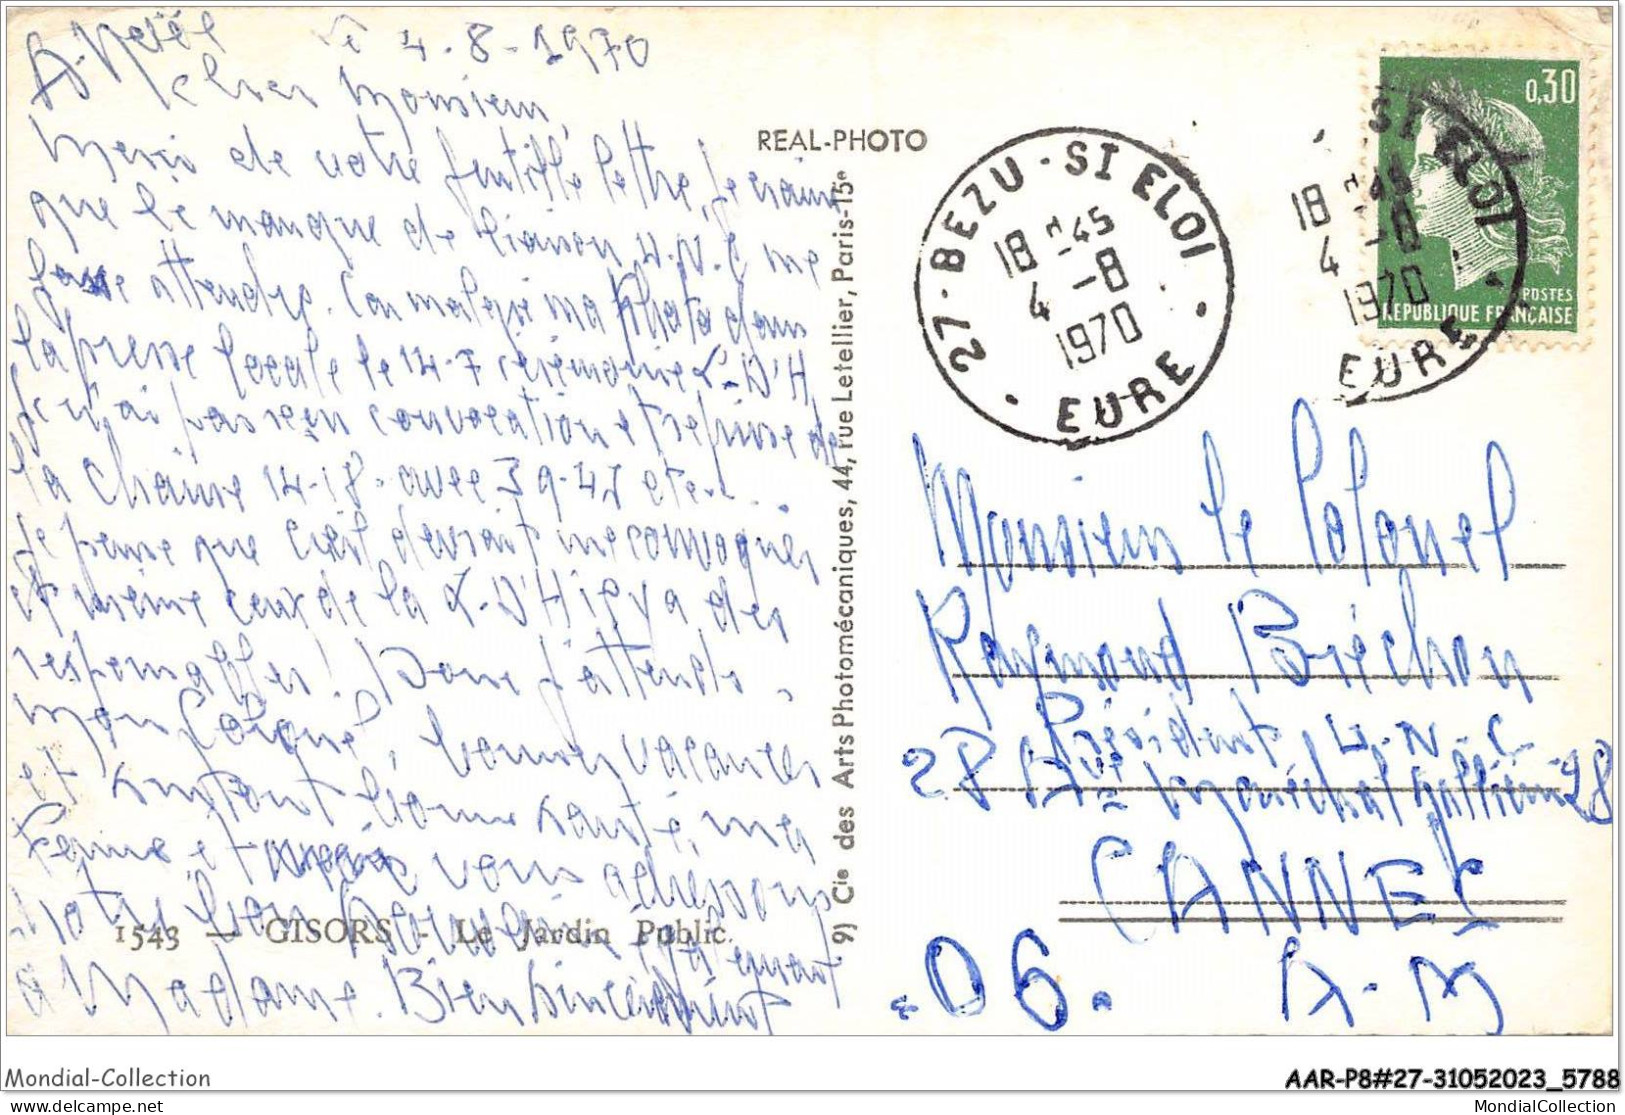 le 4-8-1970
cher Monsieur,
Merci de votre gentille lettre, je crains
que le manque de liaison U.N.C me
fasse attendre.
la presse locale le 14-7 cérémonie L-D'H
Je n'ai pas reçu convocation et reprise de
la chaîne 14-18 avec 39-45 etc..
Je pense que c'est devrait me convoquer
et même ceux de la L-D'H il y a des
responsables! Donc j'attends,
mon Colonel, bonnes vacances
et surtout bonne santé, ma
femme et vous adressons
notre bon souvenir
à Madame. Bien sincèrement
1543 — GISORS - Le Jardin Public.
REAL-PHOTO
9) Cie des Arts Photomécaniques, 44, rue Letellier, Paris-15e
27-BEZU-ST ELOI
18 H 45
4 -8
1970
EURE
ST ELOI
18 H 45
4 -8
1970
EURE
0,30
POSTES
REPUBLIQUE FRANÇAISE
Monsieur le Colonel
Raymond Bréchon
Président U-N-C
28 Ave Maréchal Galliéni 28
CANNES
-06. A-M
Mondial-Collection
AAR-P8#27-31052023_5788
www.delcampe.net
MondialCollection